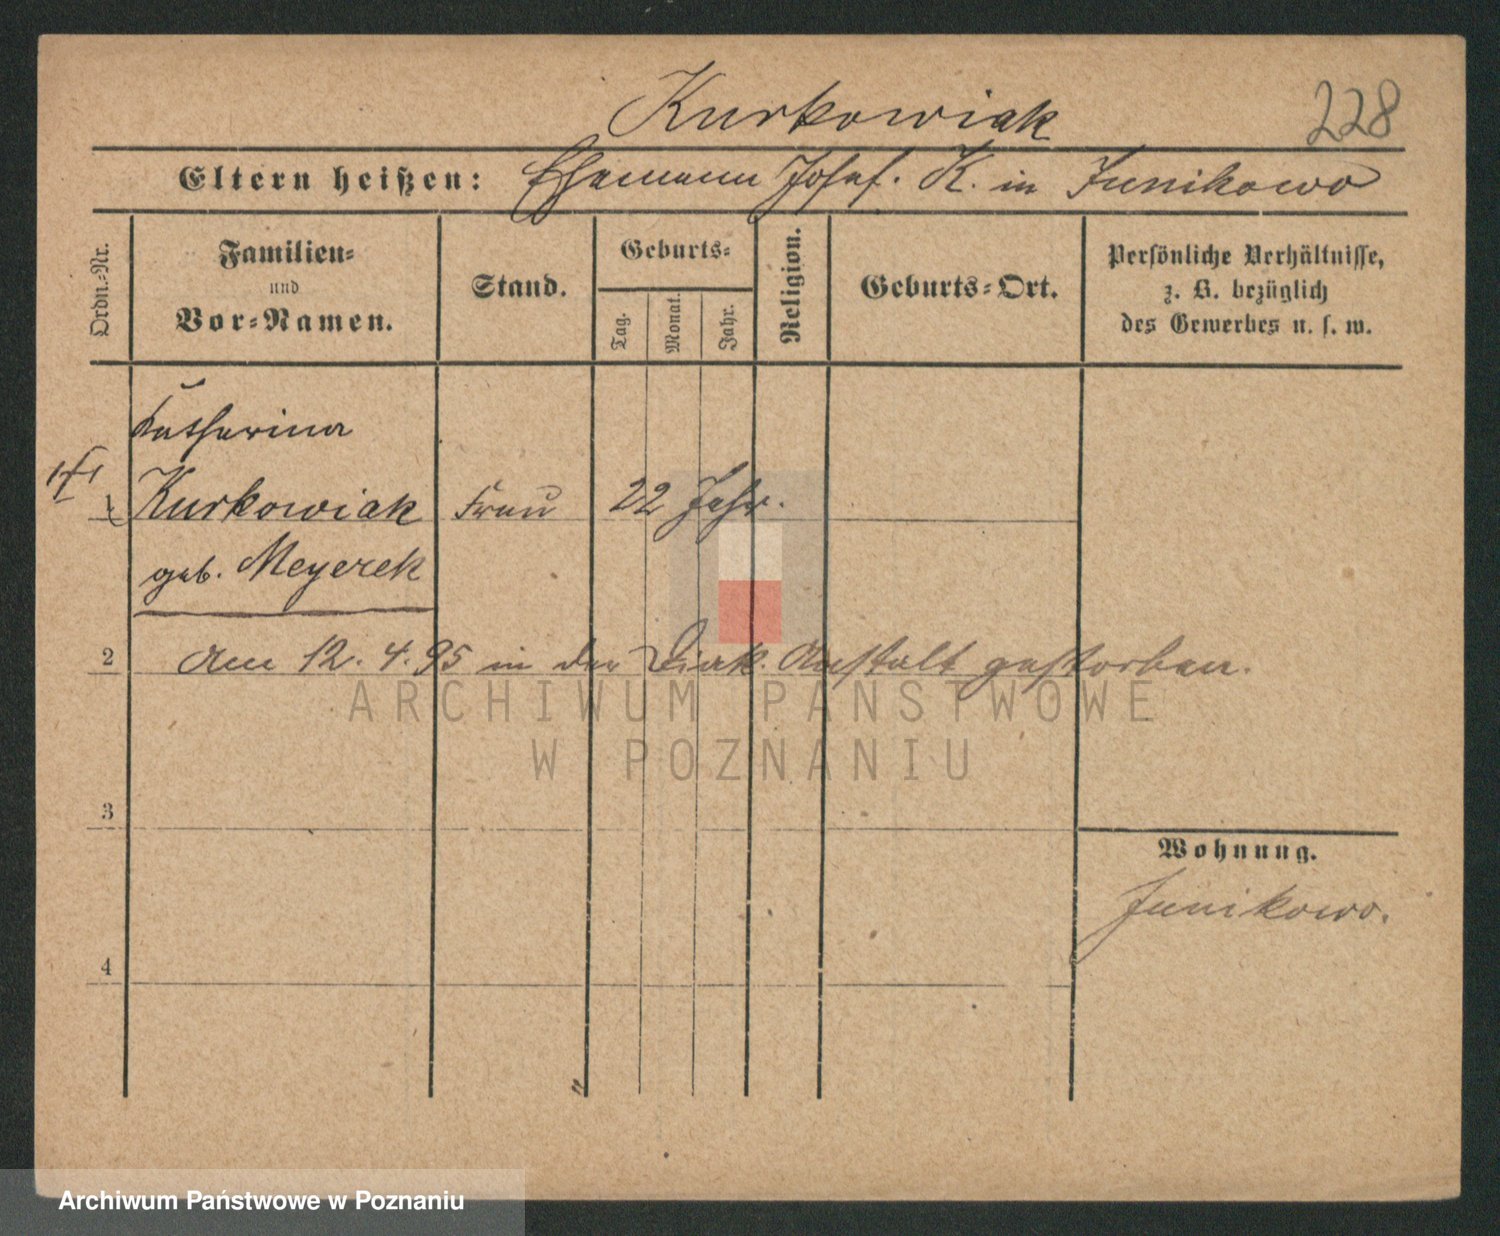 Kurkowiak
228
Eltern heißen: Ehemann Josef. K. in Junikowo
Ordn.-Nr.
Familien-
und
Vor-Namen.
Stand.
Geburts-
Tag.
Monat.
Jahr.
Religion.
Geburts-Ort.
Persönliche Verhältnisse,
z. B. bezüglich
des Gewerbes u. s. w.
Katharina
1 Kurkowiak Frau 22 Jahr.
geb. Meyerek
2 Am 12. 4. 95 in der Diak. Anstalt gestorben.
ARCHIWUM PAŃSTWOWE
W POZNANIU
3
Wohnung.
Junikowo.
4
Archiwum Państwowe w Poznaniu